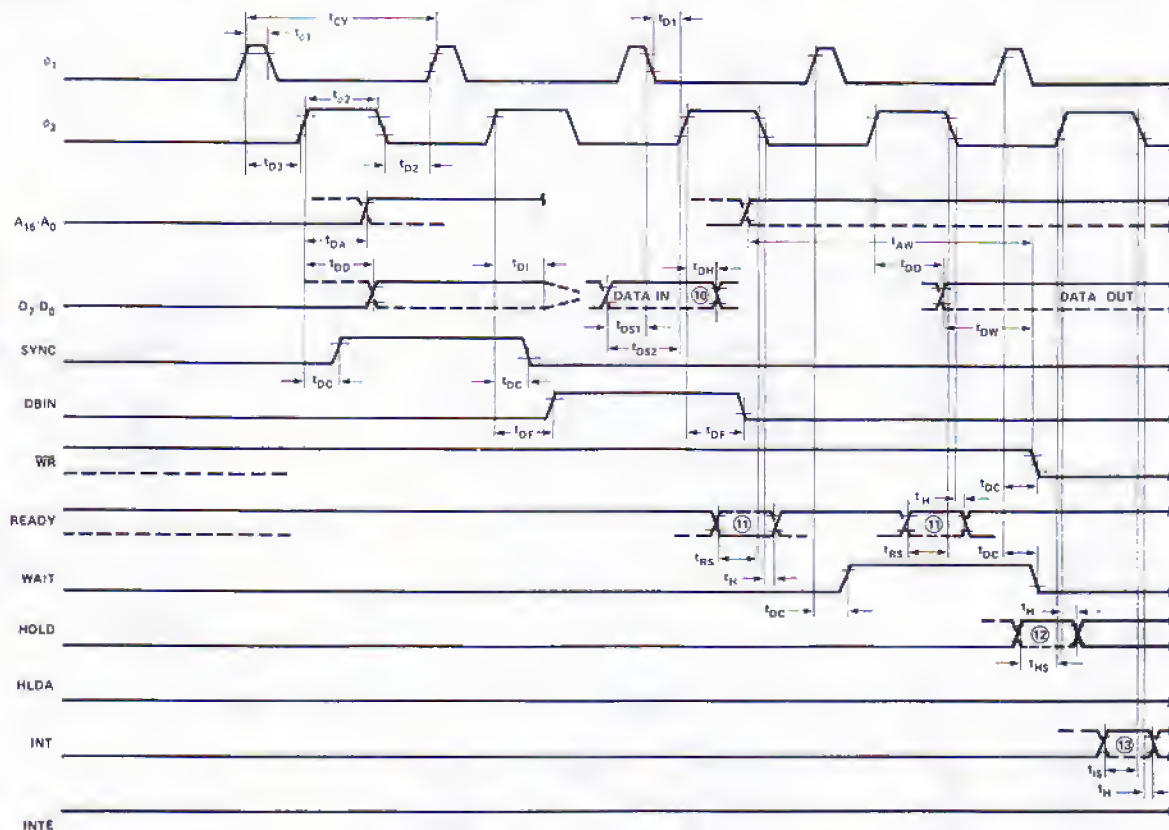 tCY
tD1
tφ1
φ1
tφ2
φ2
tD3
tD2
A16-A0
tDA
tAW
tDD
tDI
tDH
tDD
D7-D0
DATA IN
⑩
DATA OUT
tDS1
tDW
tDS2
SYNC
tDC
tDC
DBIN
tDF
tDF
WR
tDC
tH
READY
⑪
⑪
tRS
tRS
tDC
WAIT
tH
tDC
tH
HOLD
⑫
tHS
HLDA
INT
⑬
tIS
tH
INTE